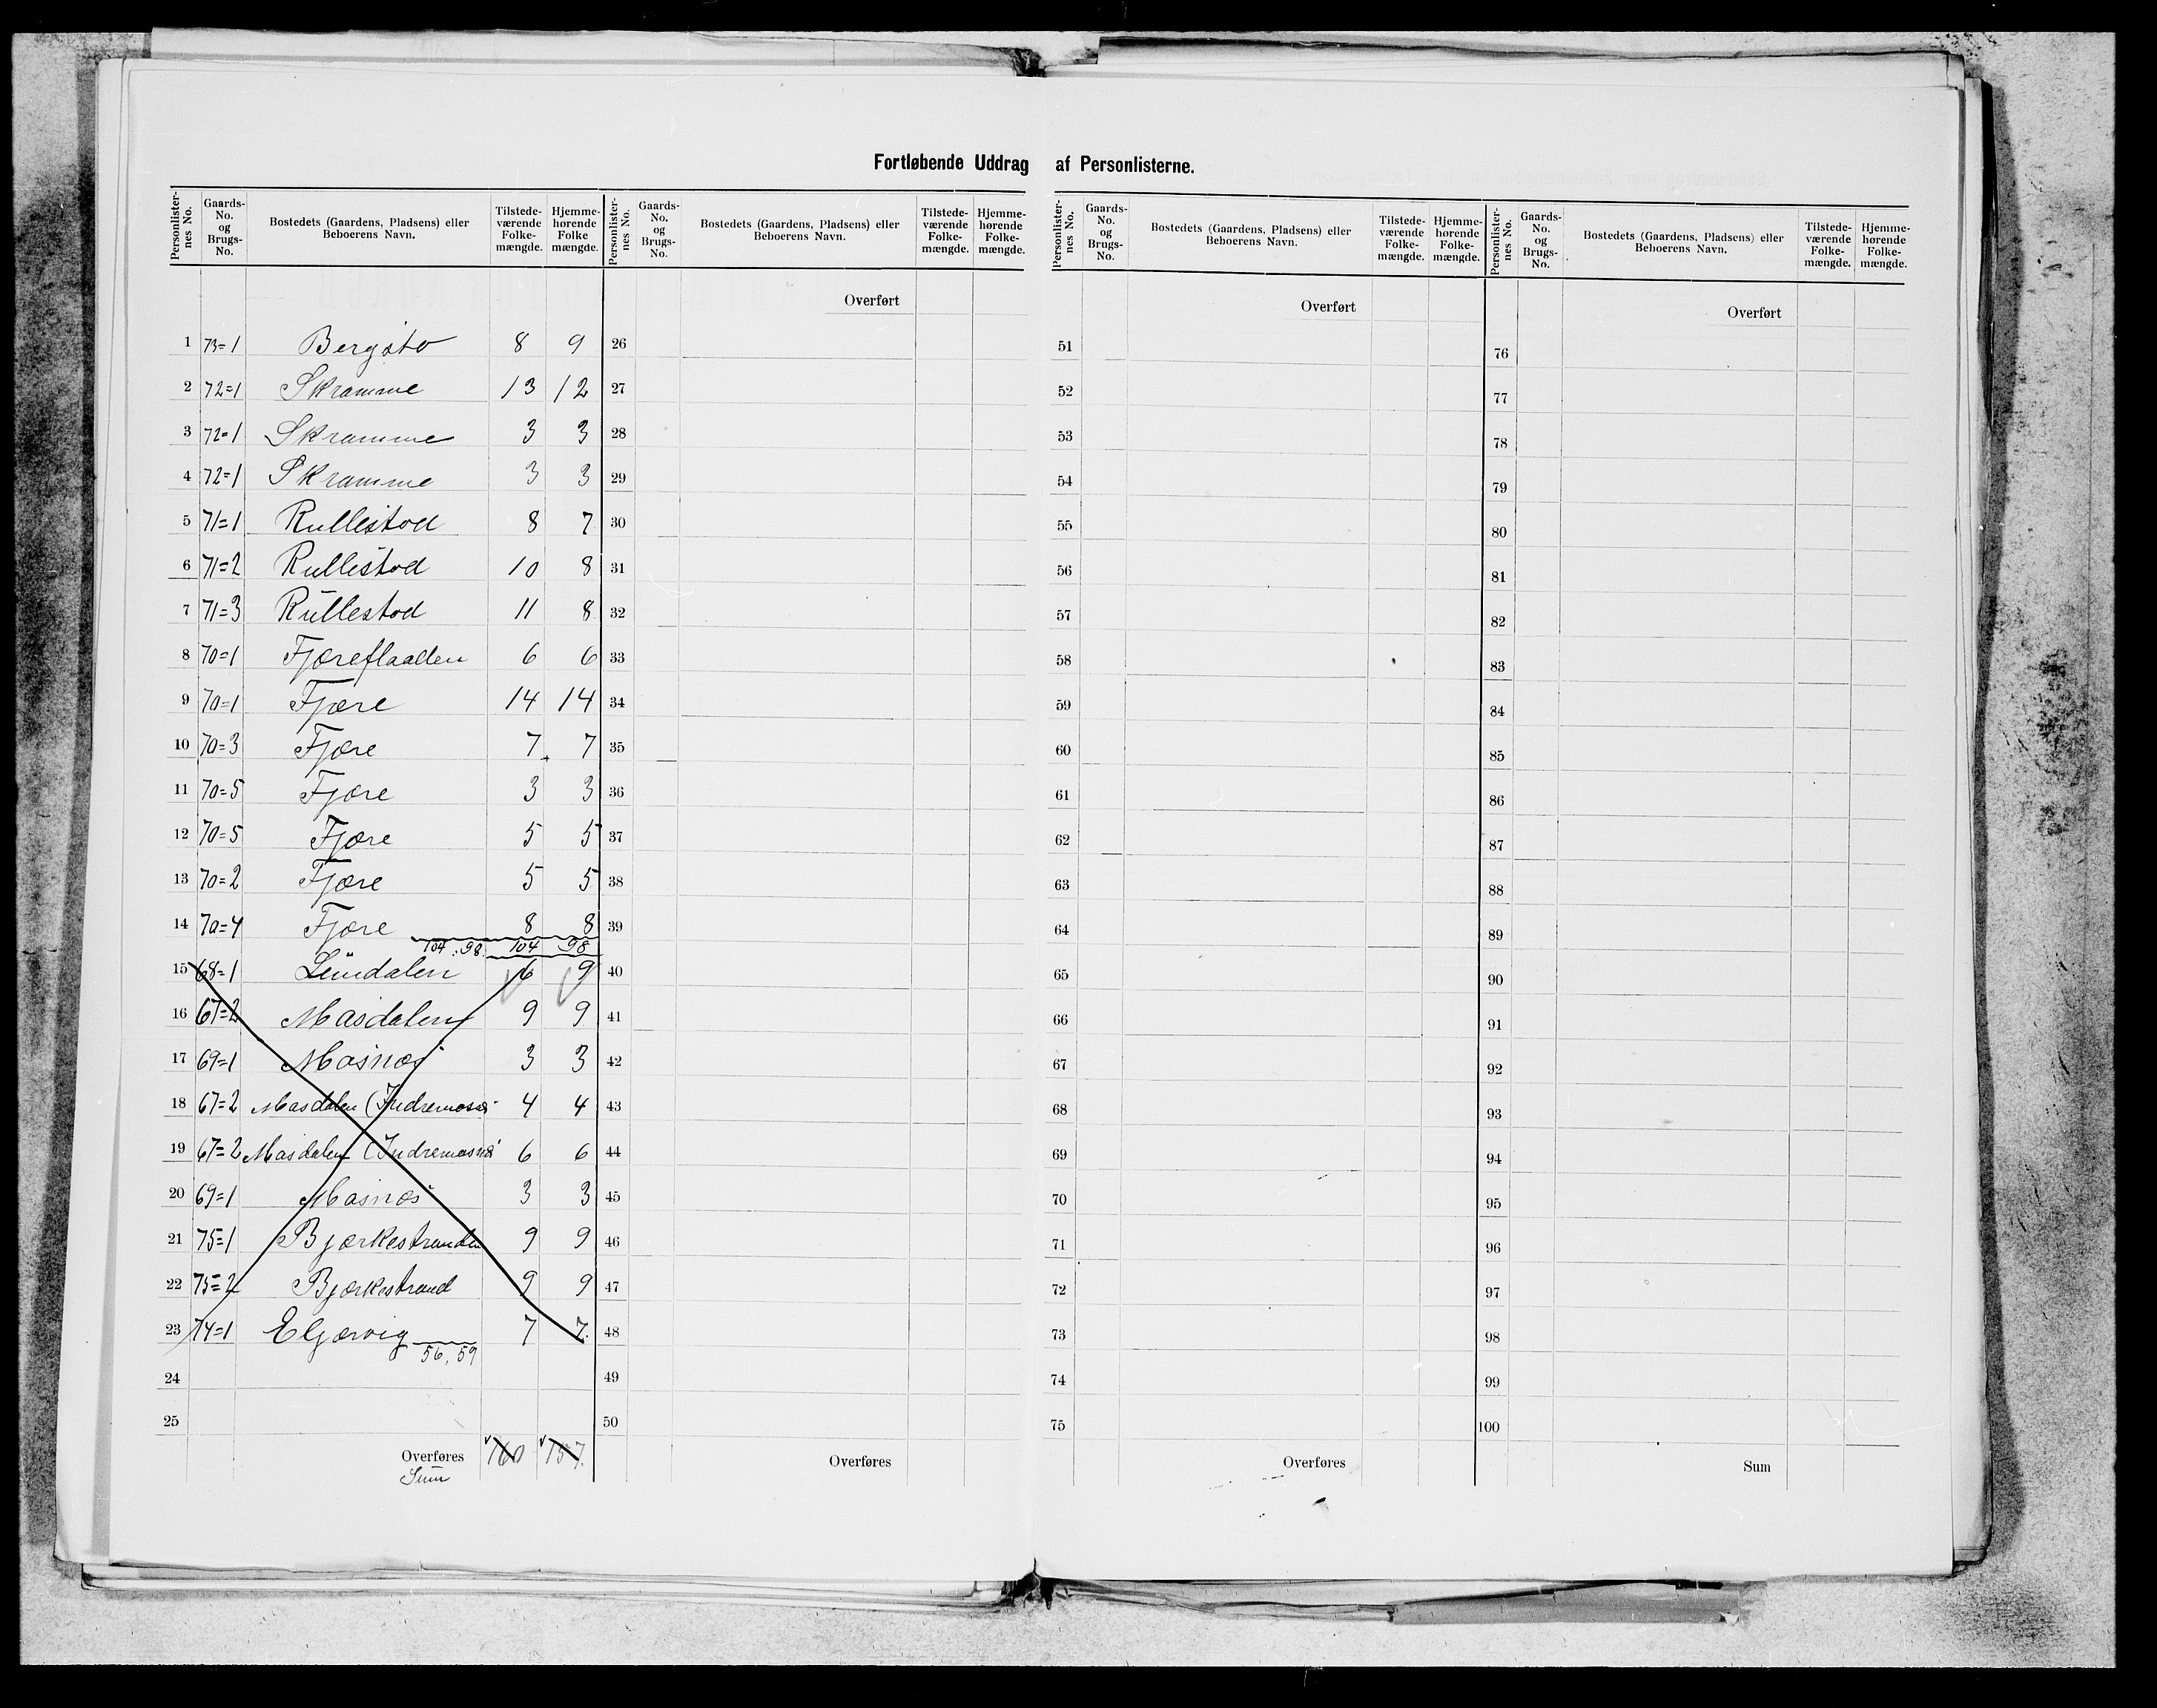 Fortløbende Uddrag af Personlisterne.
Personlister-nes No. Gaards-No. og Brugs-No. Bostedets (Gaardens, Pladsens) eller Beboerens Navn. Tilstede-værende Folke-mængde. Hjemme-hørende Folke mængde.
Personlister-nes No. Gaards-No. og Brugs-No. Bostedets (Gaardens, Pladsens) eller Beboerens Navn. Tilstede-værende Folke-mængde. Hjemme-hørende Folke-mængde.
Personlister-nes No. Gaards-No. og Brugs-No. Bostedets (Gaardens, Pladsens) eller Beboerens Navn. Tilstede-værende Folke-mængde. Hjemme-hørende Folke-mængde.
Personlister-nes No. Gaards-No. og Brugs-No. Bostedets (Gaardens, Pladsens) eller Beboerens Navn. Tilstede-værende Folke-mængde. Hjemme-hørende Folke-mængde.
Overført Overført Overført
1 73=1 Bergstø 8 9 26 51 76
2 72=1 Skramme 13 12 27 52 77
3 72=1 Skramme 3 3 28 53 78
4 72=1 Skramme 3 3 29 54 79
5 71=1 Rullestad 8 7 30 55 80
6 71=2 Rullestad 10 8 31 56 81
7 71=3 Rullestad 11 8 32 57 82
8 70=1 Fjæreflaaden 6 6 33 58 83
9 70=1 Fjære 14 14 34 59 84
10 70=3 Fjære 7 7 35 60 85
11 70=5 Fjære 3 3 36 61 86
12 70=5 Fjære 5 5 37 62 87
13 70=2 Fjære 5 5 38 63 88
14 70=4 Fjære 8 8 39 64 89
104 : 98. 104 98
15 68=1 Lundalen 6 9 40 65 90
16 67=2 Masdalen 9 9 41 66 91
17 69=1 Masnæs 3 3 42 67 92
18 67=2 Masdalen (Indremasnæs 4 4 43 68 93
19 67=2 Masdalen (Indremasnæs 6 6 44 69 94
20 69=1 Masnæs 3 3 45 70 95
21 75=1 Bjørkestranden 9 9 46 71 96
22 75=2 Bjørkestrand 9 9 47 72 97
23 74=1 Elgjærvig 7 7. 48 73 98
56, 59
24 49 74 99
25 50 75 100
Overføres 160 157. Overføres Overføres Sum
Sum